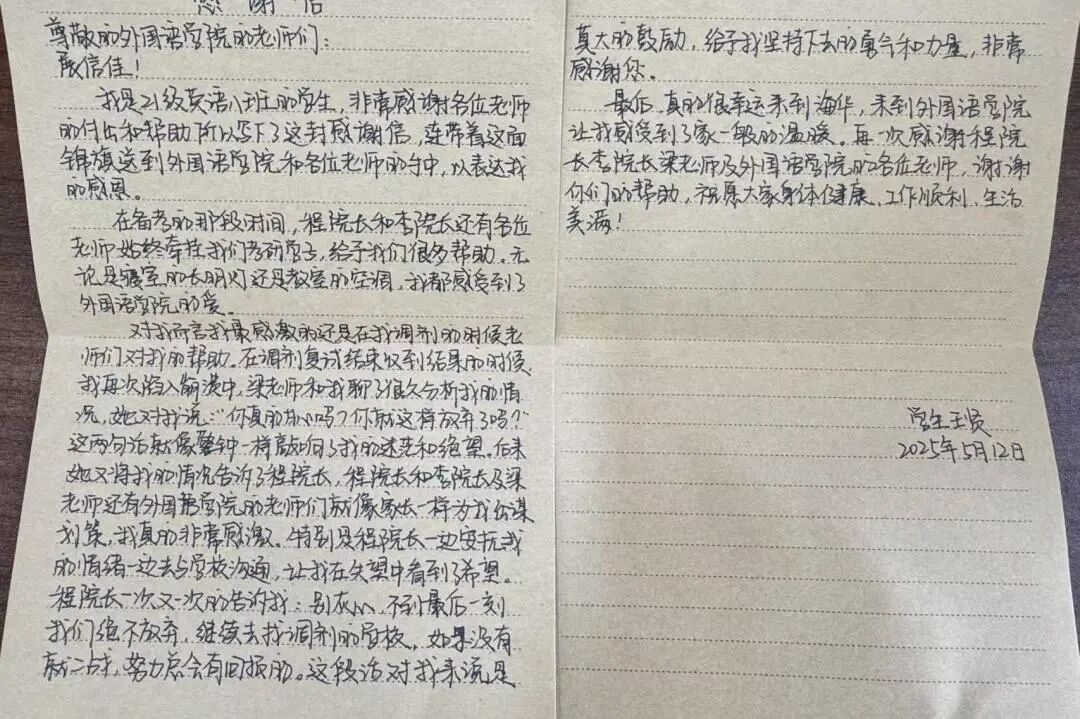 感谢信
尊敬的外国语学院的老师们：
展信佳！
我是21级英语八班的学生，非常感谢各位老师
的付出和帮助所以写下了这封感谢信，连带着这面
锦旗送到外国语学院和各位老师的手中，以表达我
的感恩。
在备考的那段时间，程院长和李院长还有各位
老师始终牵挂我们考研学子，给予我们很多帮助。无
论是寝室的长明灯还是教室的空调，我都感受到了
外国语学院的爱。
对我而言我最感激的还是在我调剂的时候老
师们对我的帮助。在调剂复试结束收到结果的时候，
我再次陷入崩溃中，梁老师和我聊了很久分析我的情
况，她对我说："你真的甘心吗？你就这样放弃了吗？"
这两句话就像警钟一样敲响了我的迷茫和绝望。后来
她又将我的情况告诉了程院长，程院长和李院长及梁
老师还有外国语学院的老师们就像家长一样为我出谋
划策，我真的非常感激。特别是程院长一边安抚我
的情绪一边去与学校沟通，让我在失望中看到了希望。
程院长一次又一次的告诉我：别灰心，不到最后一刻
我们绝不放弃，继续去找调剂的学校，如果没有
就二战，努力总会有回报的。这段话对我来说是
莫大的鼓励，给予我坚持下去的勇气和力量，非常
感谢您。
最后，真的很幸运来到海华，来到外国语学院
让我感受到了家一般的温暖。再一次感谢程院
长李院长梁老师及外国语学院的各位老师，谢谢
你们的帮助，祝愿大家身体健康、工作顺利、生活
美满！
学生王贤
2025年5月12日